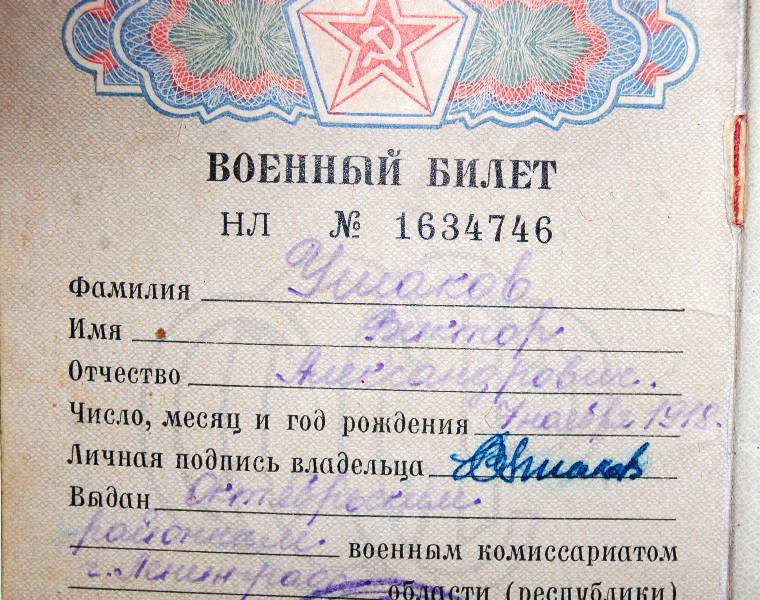 ВОЕННЫЙ БИЛЕТ
НЛ № 1634746
Фамилия Ушаков
Имя Виктор
Отчество Александрович.
Число, месяц и год рождения 7 ноября 1918.
Личная подпись владельца ВУшаков
Выдан Октябрьским
районным военным комиссариатом
г. Ленинграда области (республики)